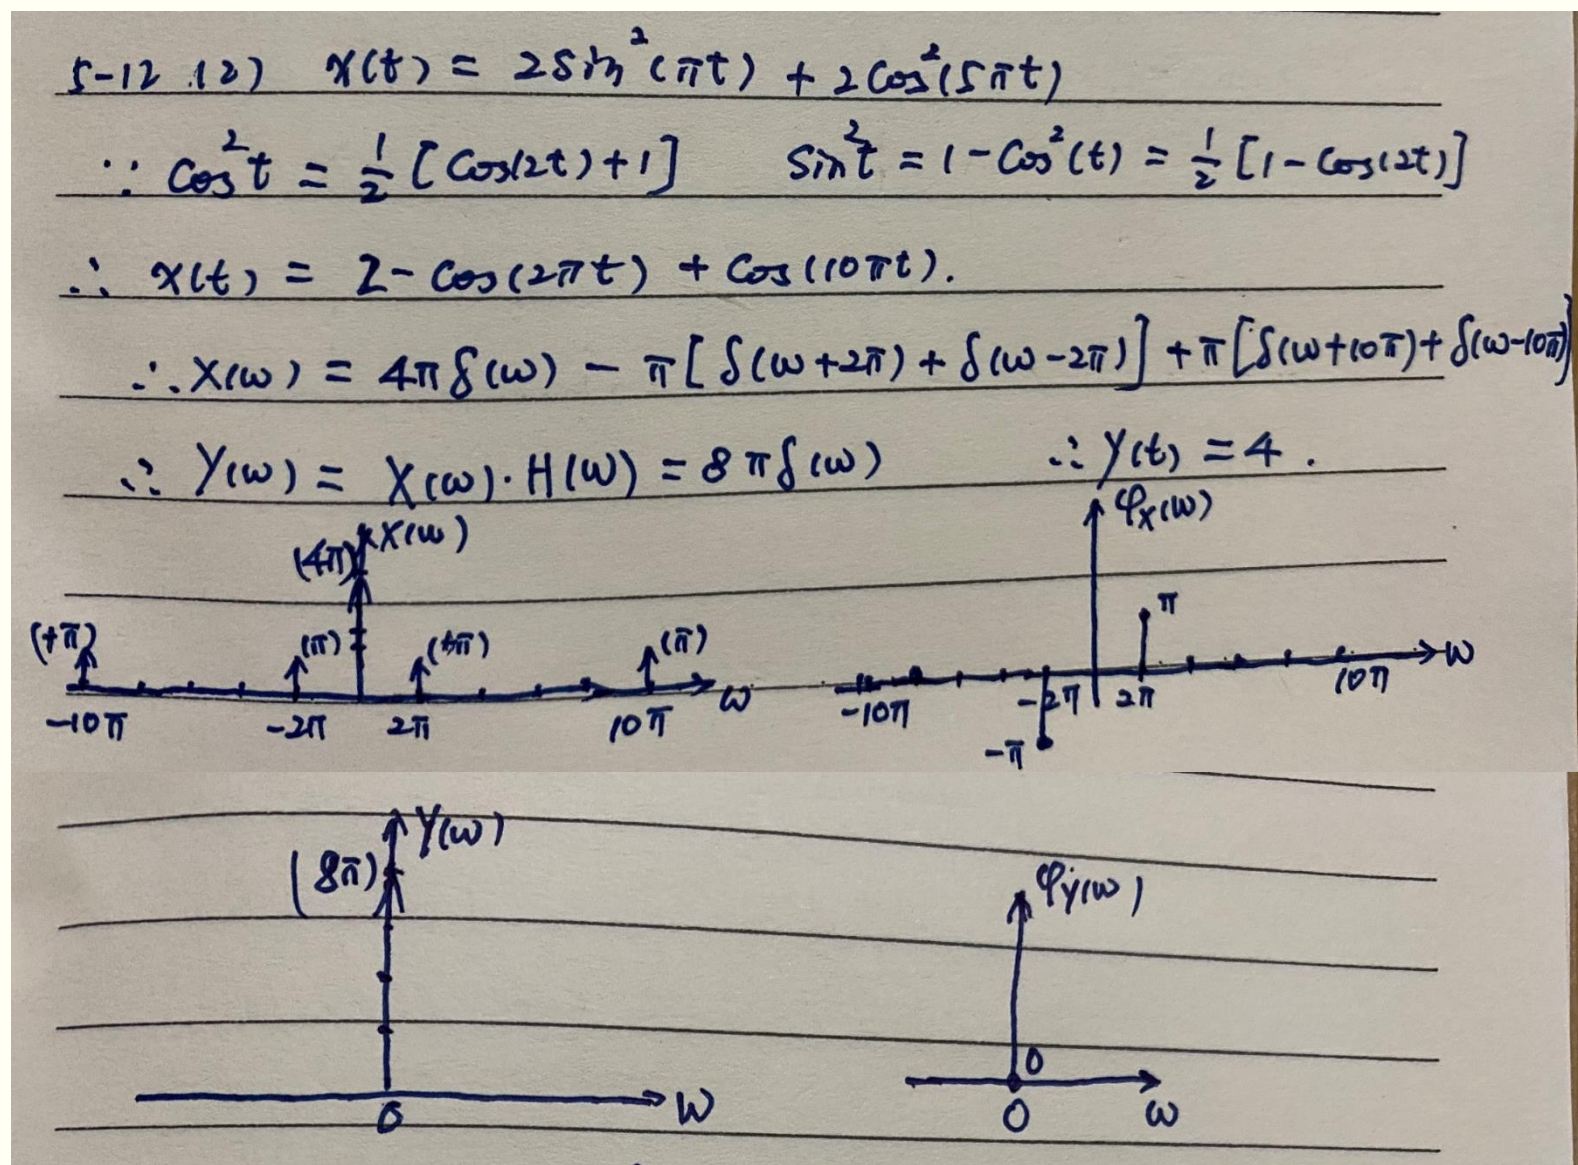 5-12 (2) x(t) = 2sin²(πt) + 2cos²(5πt)
∵ cos²t = 1/2 [cos(2t)+1] sin²t = 1-cos²(t) = 1/2 [1-cos(2t)]
∴ x(t) = 2-cos(2πt) + cos(10πt).
∴ X(ω) = 4πδ(ω) - π[δ(ω+2π) + δ(ω-2π)] + π[δ(ω+10π)+δ(ω-10π)]
∴ Y(ω) = X(ω)·H(ω) = 8πδ(ω) ∴ y(t) = 4.
(4π) X(ω) φx(ω)
(+π) (π) (+π) (π) π
-10π -2π 2π 10π ω -10π -2π 2π 10π ω
-π
(8π) Y(ω) φy(ω)
0
0 ω 0 ω